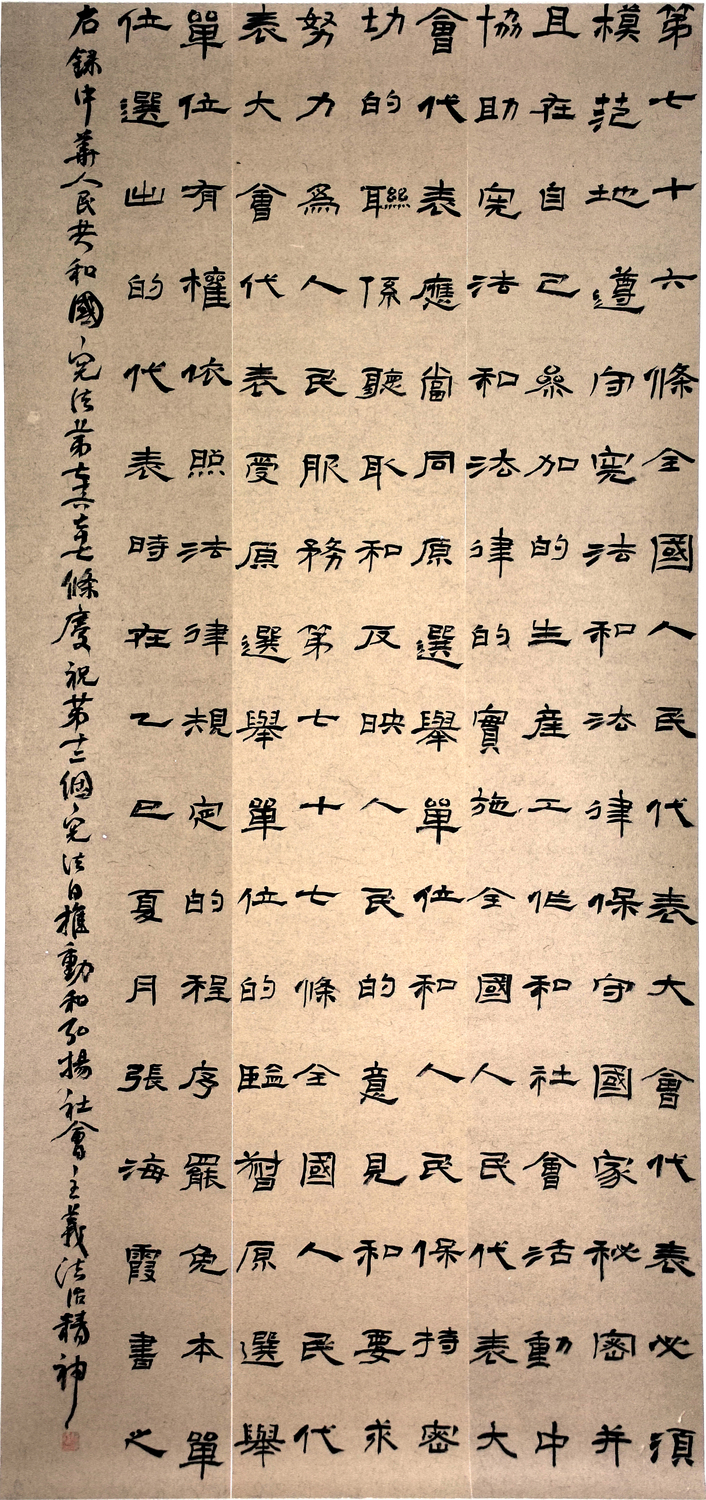 第七十六條全國人民代表大會代表必須
模范地遵守宪法和法律保守國家秘密并
且在自己叅加的生産工作和社會活動中
協助宪法和法律的實施全國人民代表大
會代表應當同原選舉單位和人民保持密
切的聯係聽取和反映人民的意見和要求
努力為人民服務第七十七條全國人民代
表大會代表受原選舉單位的監督原選舉
單位有權依照法律規定的程序罷免本單
位選出的代表時在乙巳夏月張海霞書之
右録中華人民共和國宪法第七十六七十七條慶祝第十二個宪法日推動和弘揚社會主義法治精神